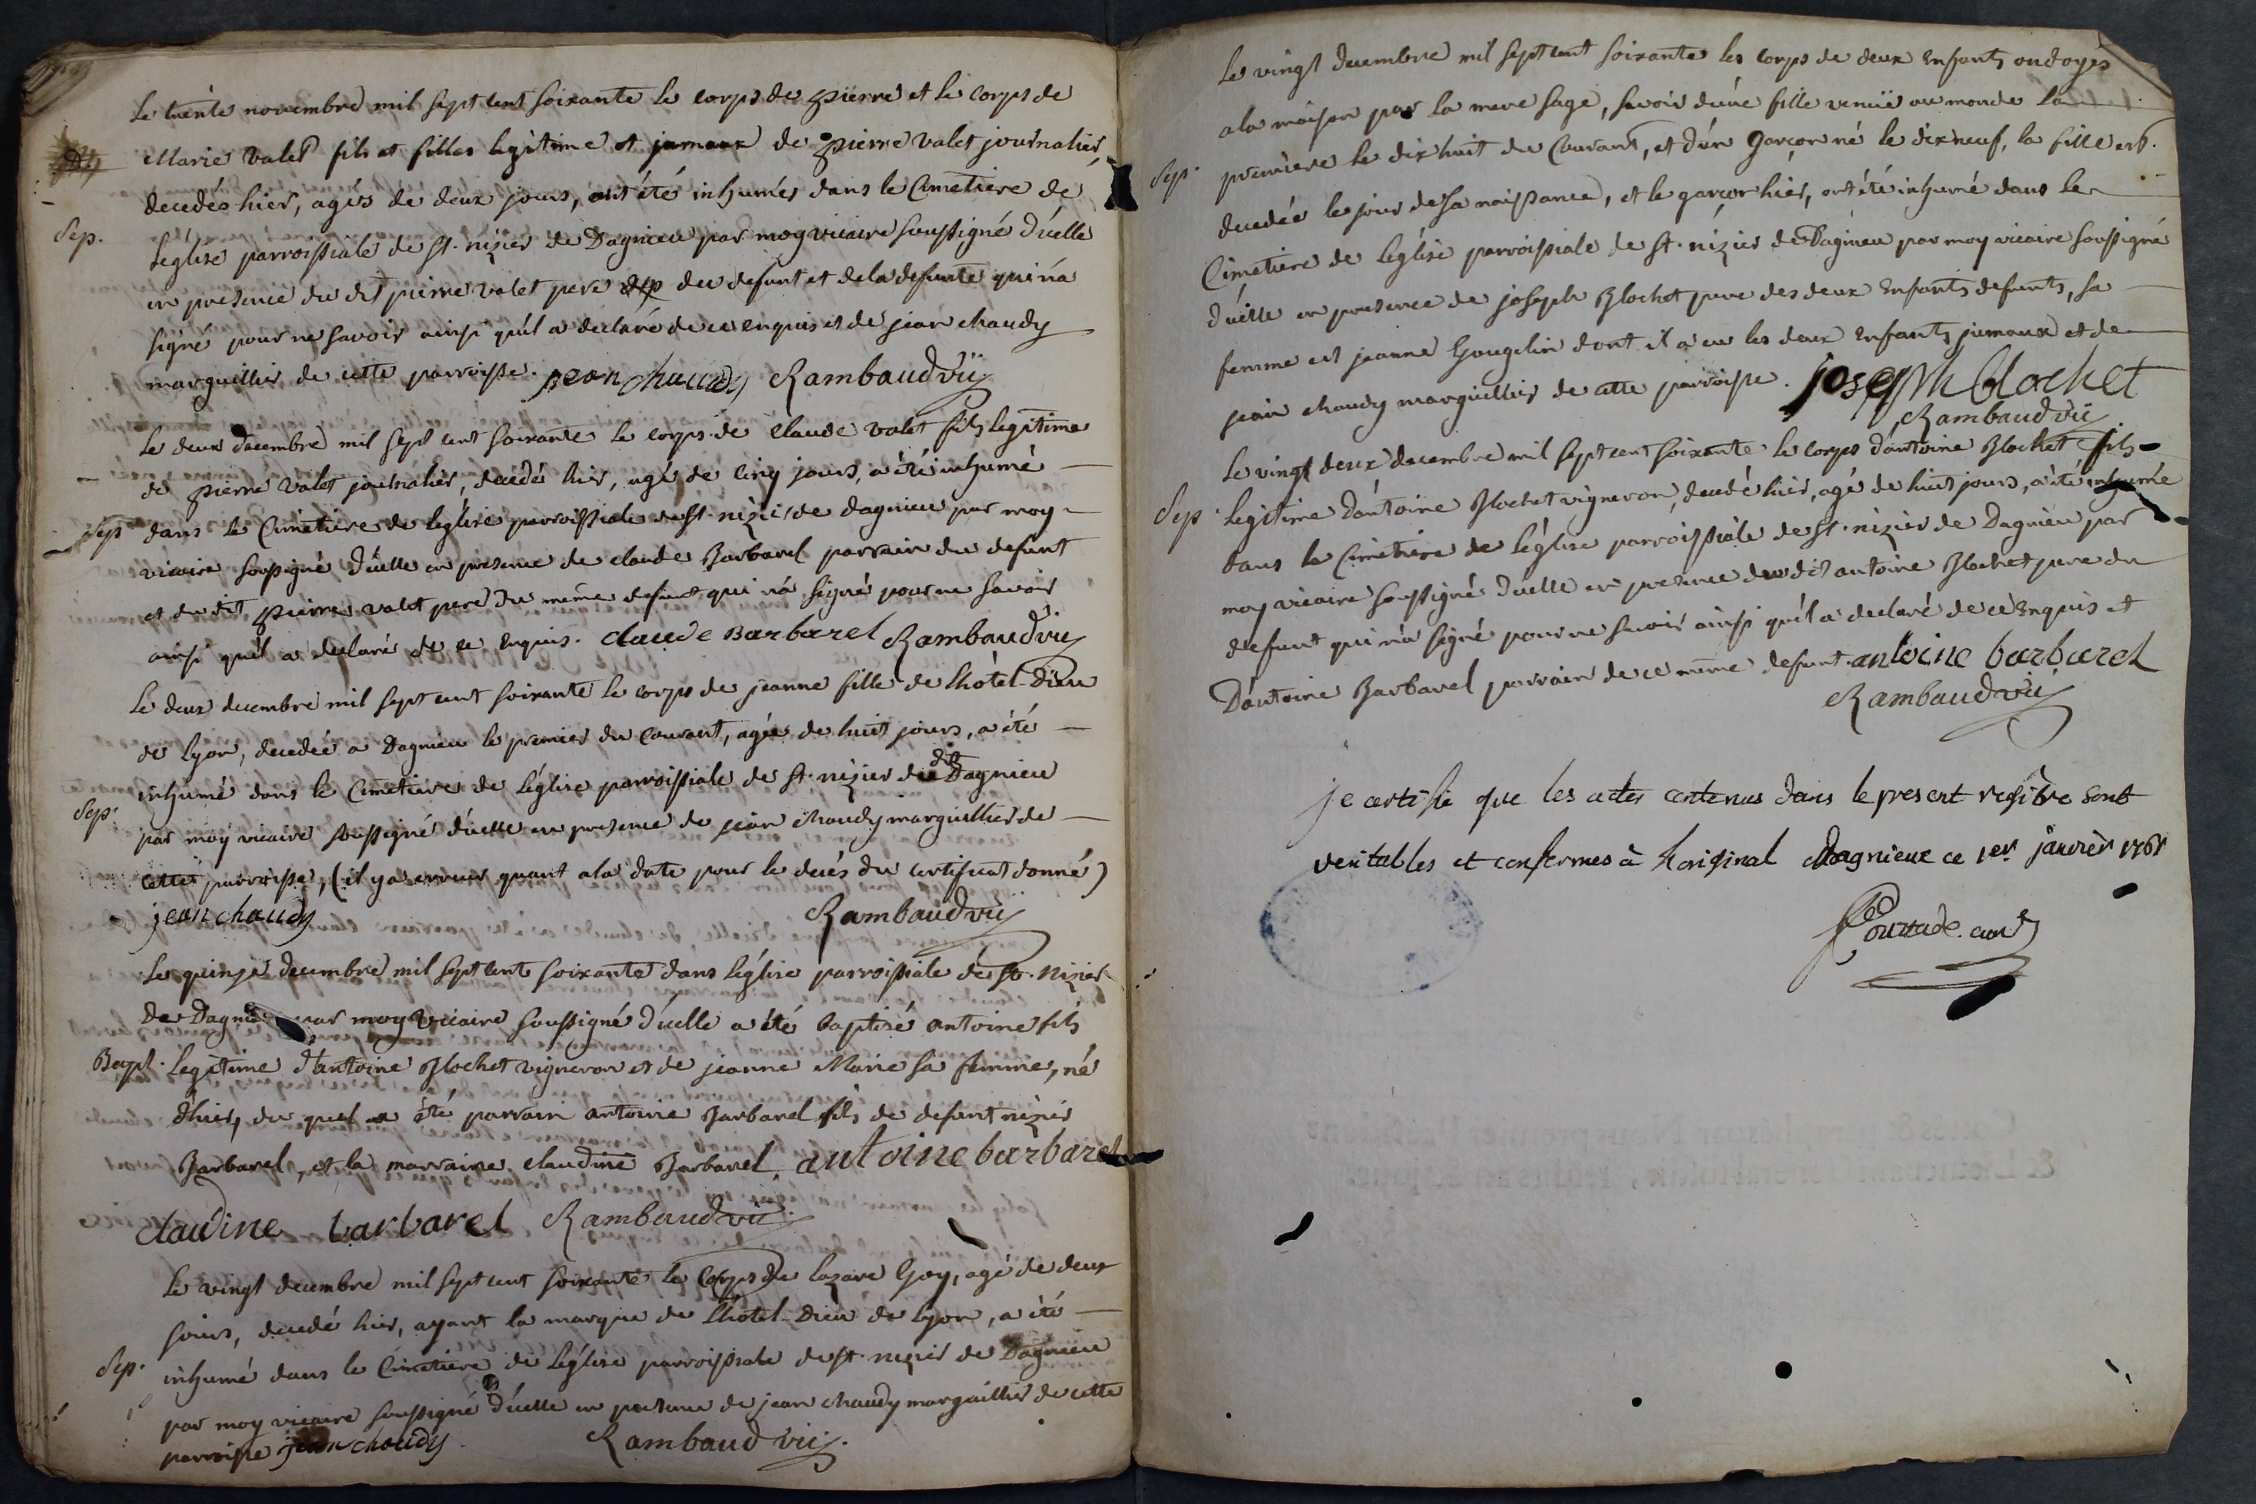 Le trente novembre mil sept cent soixante le corps de pierre et le corps de
Marie valet fils et filles legitime et jumeaux de pierre valet journalier,
decedés hier, agés de deux jours, ont été inhumés dans le Cimetiere de
Sep. L'eglise parroissiale de st. nizier de Dagnieu par moy vicaire soussigné d'icelle
en presence du dit pierre valet pere du defunt et de la defunte qui n'a
signé pour ne savoir ainsi qu'il a declaré de ce enquis et de jean chaudy
marguillier de cette parroisse. jean chaudy Rambaud vic
Le deux decembre mil sept cent soixante le corps de Claude valet fils legitime
de pierre valet journalier, decedé hier, agé de cinq jours, a été inhumé
Sep dans le Cimetiere de l'eglise parroissiale de st. nizier de dagnieu par moy
vicaire soussigné d'icelle en presence de claude Barbarel parrain du defunt
et du dit pierre valet pere du même defunt qui n'a signé pour ne savoir
ainsi qu'il a declaré de ce enquis. claude Barbarel Rambaud vic
Le deux decembre mil sept cent soixante le corps de jeanne fille de l'hôtel-Dieu
de lyon, decedée a Dagnieu le premier du Courant, agée de huit jours, a été
inhumé dans le Cimetiere de L'église parroissiale de st. nizier de Dagnieu
Sep. par moy vicaire soussigné d'icelle en presence de jean chaudy marguillier de
cette parroisse, (il y a erreur quant a la date pour le decés du certificat donné)
jean chaudy Rambaud vic
Le quinze decembre mil sept cent soixante dans l'église parroissiale de st. Nizier
de Dagnieu par moy vicaire soussigné d'icelle a été baptisé antoine fils
Bapt. Legitime d'antoine Blochet vigneron et de jeanne Marie sa femme, né
d'hier, du quel a été parrain antoine Barbarel fils de defunt nizier
Barbarel, et la marraine claudine Barbarel. antoine barbarel
claudine barbarel Rambaud vic.
Le vingt decembre mil sept cent soixante le Corps de lazare Goy, agé de deux
jours, decedé hier, ayant la marque de l'hotel-Dieu de lyon, a été
Sep. inhumé dans le Cimetiere de L'église parroissiale de st. nizier de Dagnieu
par moy vicaire soussigné d'icelle en presence de jean chaudy marguillier de cette
parroisse jean chaudy. Rambaud vic.
Le vingt decembre mil sept cent soixante les corps de deux enfants ondoyés
a la maison par la mere sage, savoir d'une fille venuë au monde la
Sep. premiere le dix huit du Courant, et d'un garçon né le dix neuf, la fille est
decedée le jour de sa naissance, et le garçon hier, ont été inhumé dans le
Cimetiere de l'église parroissiale de st. nizier de Dagnieu par moy vicaire soussigné
d'icelle en presence de joseph Blochet pere des deux enfants defunts, sa
femme est jeanne Gougelin dont il a eu les deux enfants jumeaux et de
jean chaudy marguillier de cette parroisse. joseph blochet
Rambaud vic
Le vingt deux decembre mil sept cent soixante le corps d'antoine Blochet fils
Sep. Legitime d'antoine Blochet vigneron, decedé hier, agé de huit jours, a été inhumé
dans le Cimetiere de l'église parroissiale de st. nizier de Dagnieu par
moy vicaire soussigné d'icelle en presence du dit antoine Blochet pere du
defunt qui n'a signé pour ne savoir ainsi qu'il a declaré de ce enquis et
D'antoine Barbarel parrain de ce même defunt. antoine barbarel
Rambaud vic
je certifie que les actes contenus dans le present registre sont
veritables et conformes à l'original à Dagnieux ce 1er janvier 1761